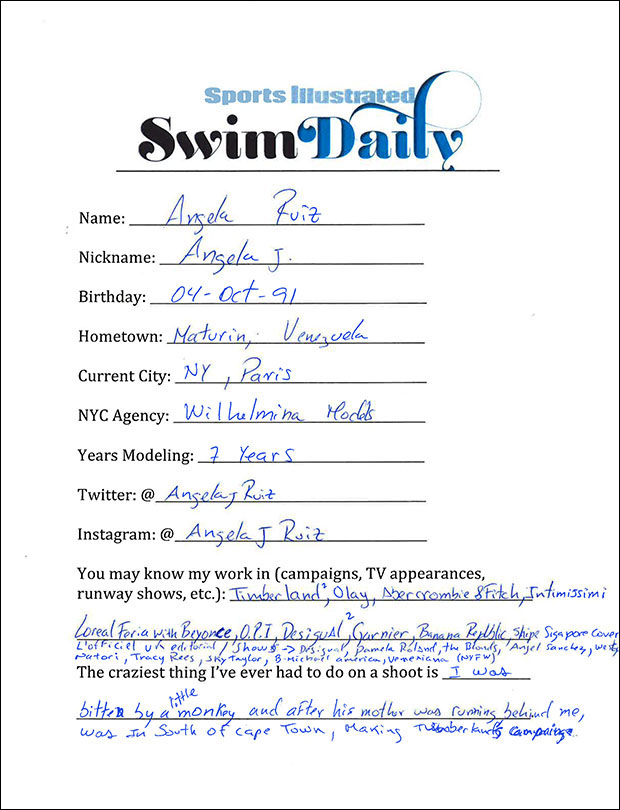 Sports Illustrated
Swim Daily
Name: Angela Ruiz
Nickname: Angela J.
Birthday: 04-Oct-91
Hometown: Maturin, Venezuela
Current City: NY, Paris
NYC Agency: Wilhelmina Models
Years Modeling: 7 Years
Twitter: @ Angelaj Ruiz
Instagram: @ Angela J Ruiz
You may know my work in (campaigns, TV appearances,
runway shows, etc.): Timberland², Olay, Abercrombie & Fitch, Intimissimi
Loreal Feria with Beyonce, O.P.I, Desigual², Garnier, Banana Republic, Shipe Sigapore Cover
L'officiel uk editorial / Shows -> Desigual, Pamela Roland, the Blonds, Angel Sanchez,
Natori, Tracy Rees, Sky Taylor, B. Michael america, Venexiana (NYFW)
The craziest thing I've ever had to do on a shoot is I was
bitten by a little monkey and after his mother was running behind me,
was in South of cape Town, Making Timberland's campaign.